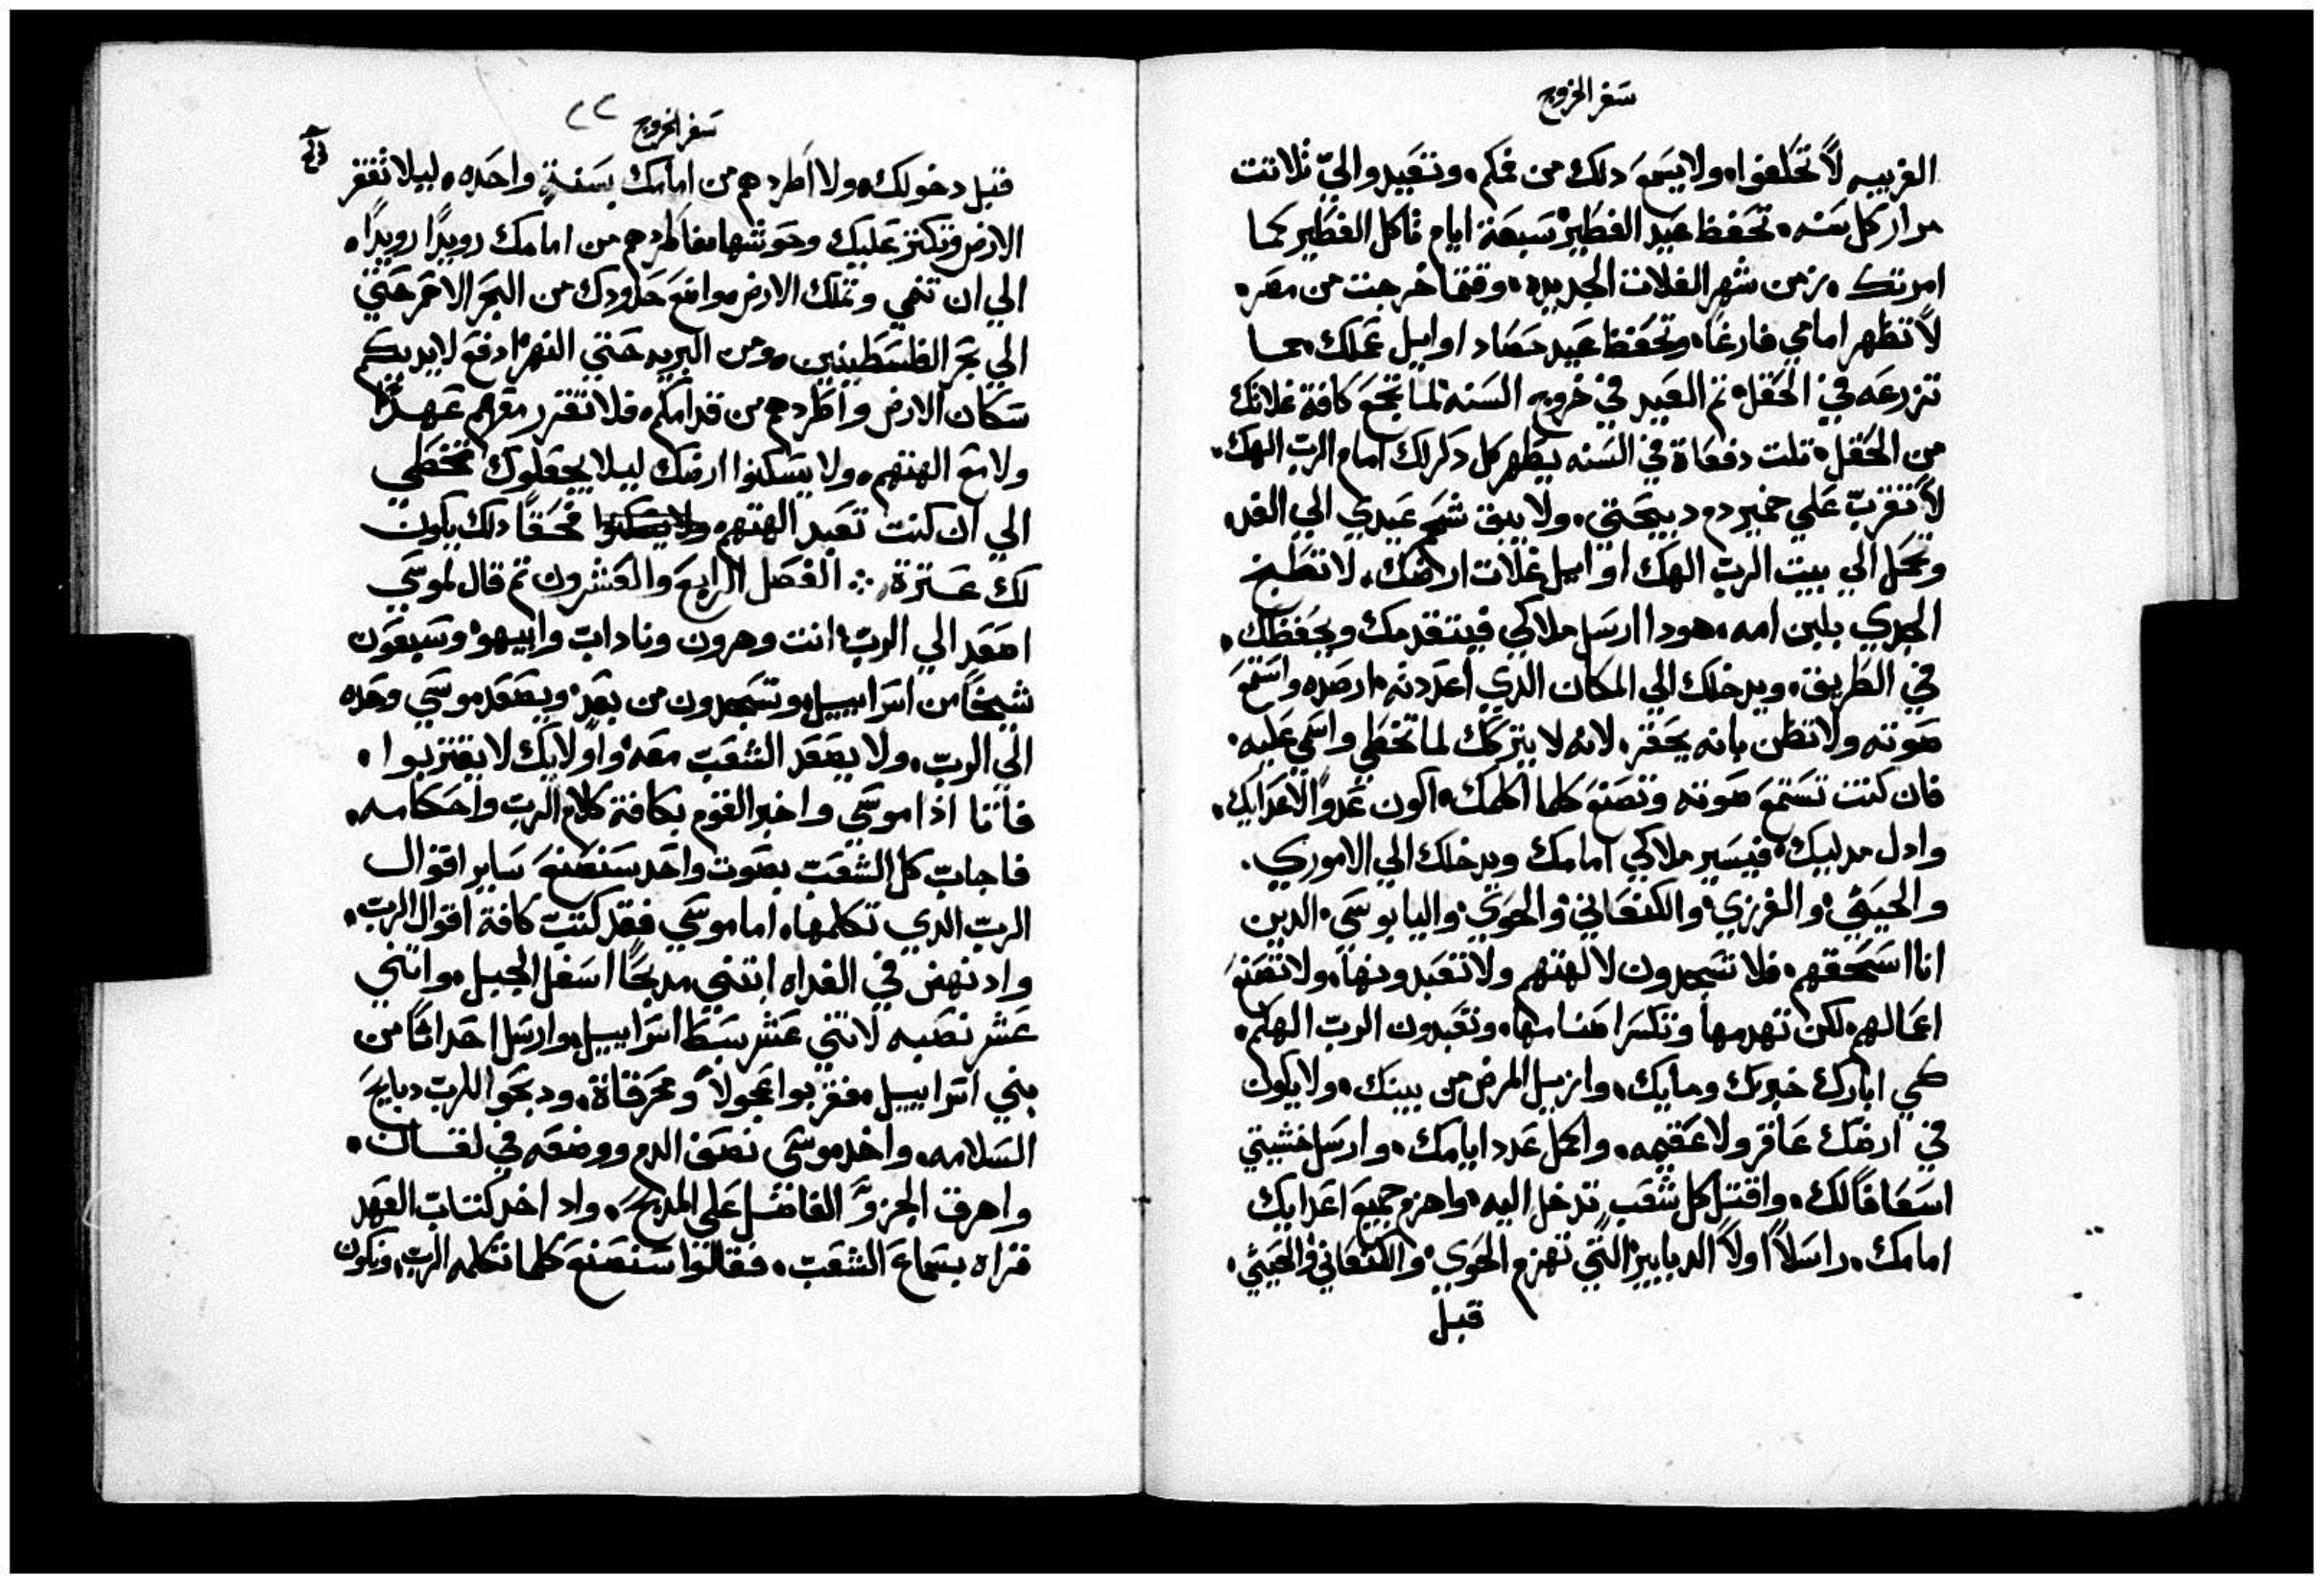 سفر الخروج
الغريبه لا تحلفوا، ولا يسمع دلك من فمكم، وتعيدوا اليّ ثلاتت
مرار كل سنه، تحفظ عيد الفطير سبعة ايام تاكل الفطير كما
امرتك، زمن شهر الغلات الجديده، وقتما خرجت من مصر،
لا تظهر امامي فارغاً، وتحفظ عيد حصاد اوايل عملك مهما
تزرعه في الحقل، تم العيد في خروج السنه لما تجمع كافة غلاتك
من الحقل، تلت دفعاة في السنه يظهر كل دكر لك امام الرب الهك،
لا تقرب علي خمير دم دبيحتي، ولا يبق شحم عيدي الي الغد،
وتحمل الي بيت الرب الهك اوايل غلات ارضك، لا تطبخ
الجدي بلبن امه، هودا ارسل ملاكي فيتقدمك ويحفظك،
في الطريق، ويدخلك الي المكان الذي اعددته، ارصده واستمع
صوته ولا تظن بانه يحقر، لانه لا يتركك لما تخطي واسمي عليه،
فان كنت تستمع صوته وتصنع كلما اكلمك، اكون عدواً لاعدايك،
وادل مدليك، فيسير ملاكي امامك ويدخلك الي الاموري.
والحيثي، والفرزي، والكنعاني، والحوي، واليابوسي، الدين
انا اسحقهم، فلا تسجدون لالهتهم ولا تعبدونها، ولا تصنع
اعمالهم، لكن تهدمها وتكسر اصنامها، وتعبدون الرب الهكم،
كي ابارك خبزك ومايك، وازيل المرض من بينك، ولا يكون
في ارضك عاقر ولا عقيمه، واكمل عدد ايامك، وارسل خشيتي
اسعافاً لك، واقتل كل شعب تدخل اليه، واهزم جميع اعدايك
امامك، راسلاً اولاً الدبابير التي تهزم الحوي، والكنعاني والحيثي،
قبل
سفر الخروج ٢٢
قبل دخولك، ولا اطردهم من امامك بسنةٍ واحده، ليلا تقفر
الارض وتكتر عليك وحوشها، فاطردهم من امامك رويداً رويداً،
الي ان تنمي وتملك الارض، واضع حدودك من البحر الاحمر حتي
الي بحر الفلسطينيين، ومن البريه حتي النهر، ادفع لايديكم
سكان الارض واطردهم من قدامكم، فلا تقرر معهم عهداً
ولا مع الهتهم، ولا يسكنوا ارضك ليلا يجعلوك تخطي
الي ان كنت تعبد الهتهم ولا يسكنوا فحقاً دلك يكون
لك عسترة ⁘ الفصل الرابع والعشرون تم قال لموسي
اصعد الي الرب، انت وهرون وناداب وابيهو، وسبعون
شيخاً من اسراييل، وتسجدون من بعد، ويصعد موسي وحده
الي الرب، ولا يصعد الشعب معه، واولايك لا يقتربوا،
فاتا اذا موسي واخبر القوم بكافة كلام الرب واحكامه،
فاجاب كل الشعب بصوت واحد سنصنع ساير اقوال
الرب الدي تكلمها، اما موسي فقد كتب كافة اقوال الرب،
واد نهض في الغداه ابتني مدبحاً اسفل الجبل، واتني
عشر نصبه لاتني عشر سبط اسراييل، وارسل احداثاً من
بني اسراييل، فقربوا عجولاً ومحرقاة، ودبحوا للرب دبايح
السلامه، واخد موسي نصف الدم ووضعه في لقسات،
واهرق الجزو الفاضل علي المدبح، واد اخد كتاب العهد
قراه بسماع الشعب، فقالوا سنصنع كلما تكلمه الرب، ونكون